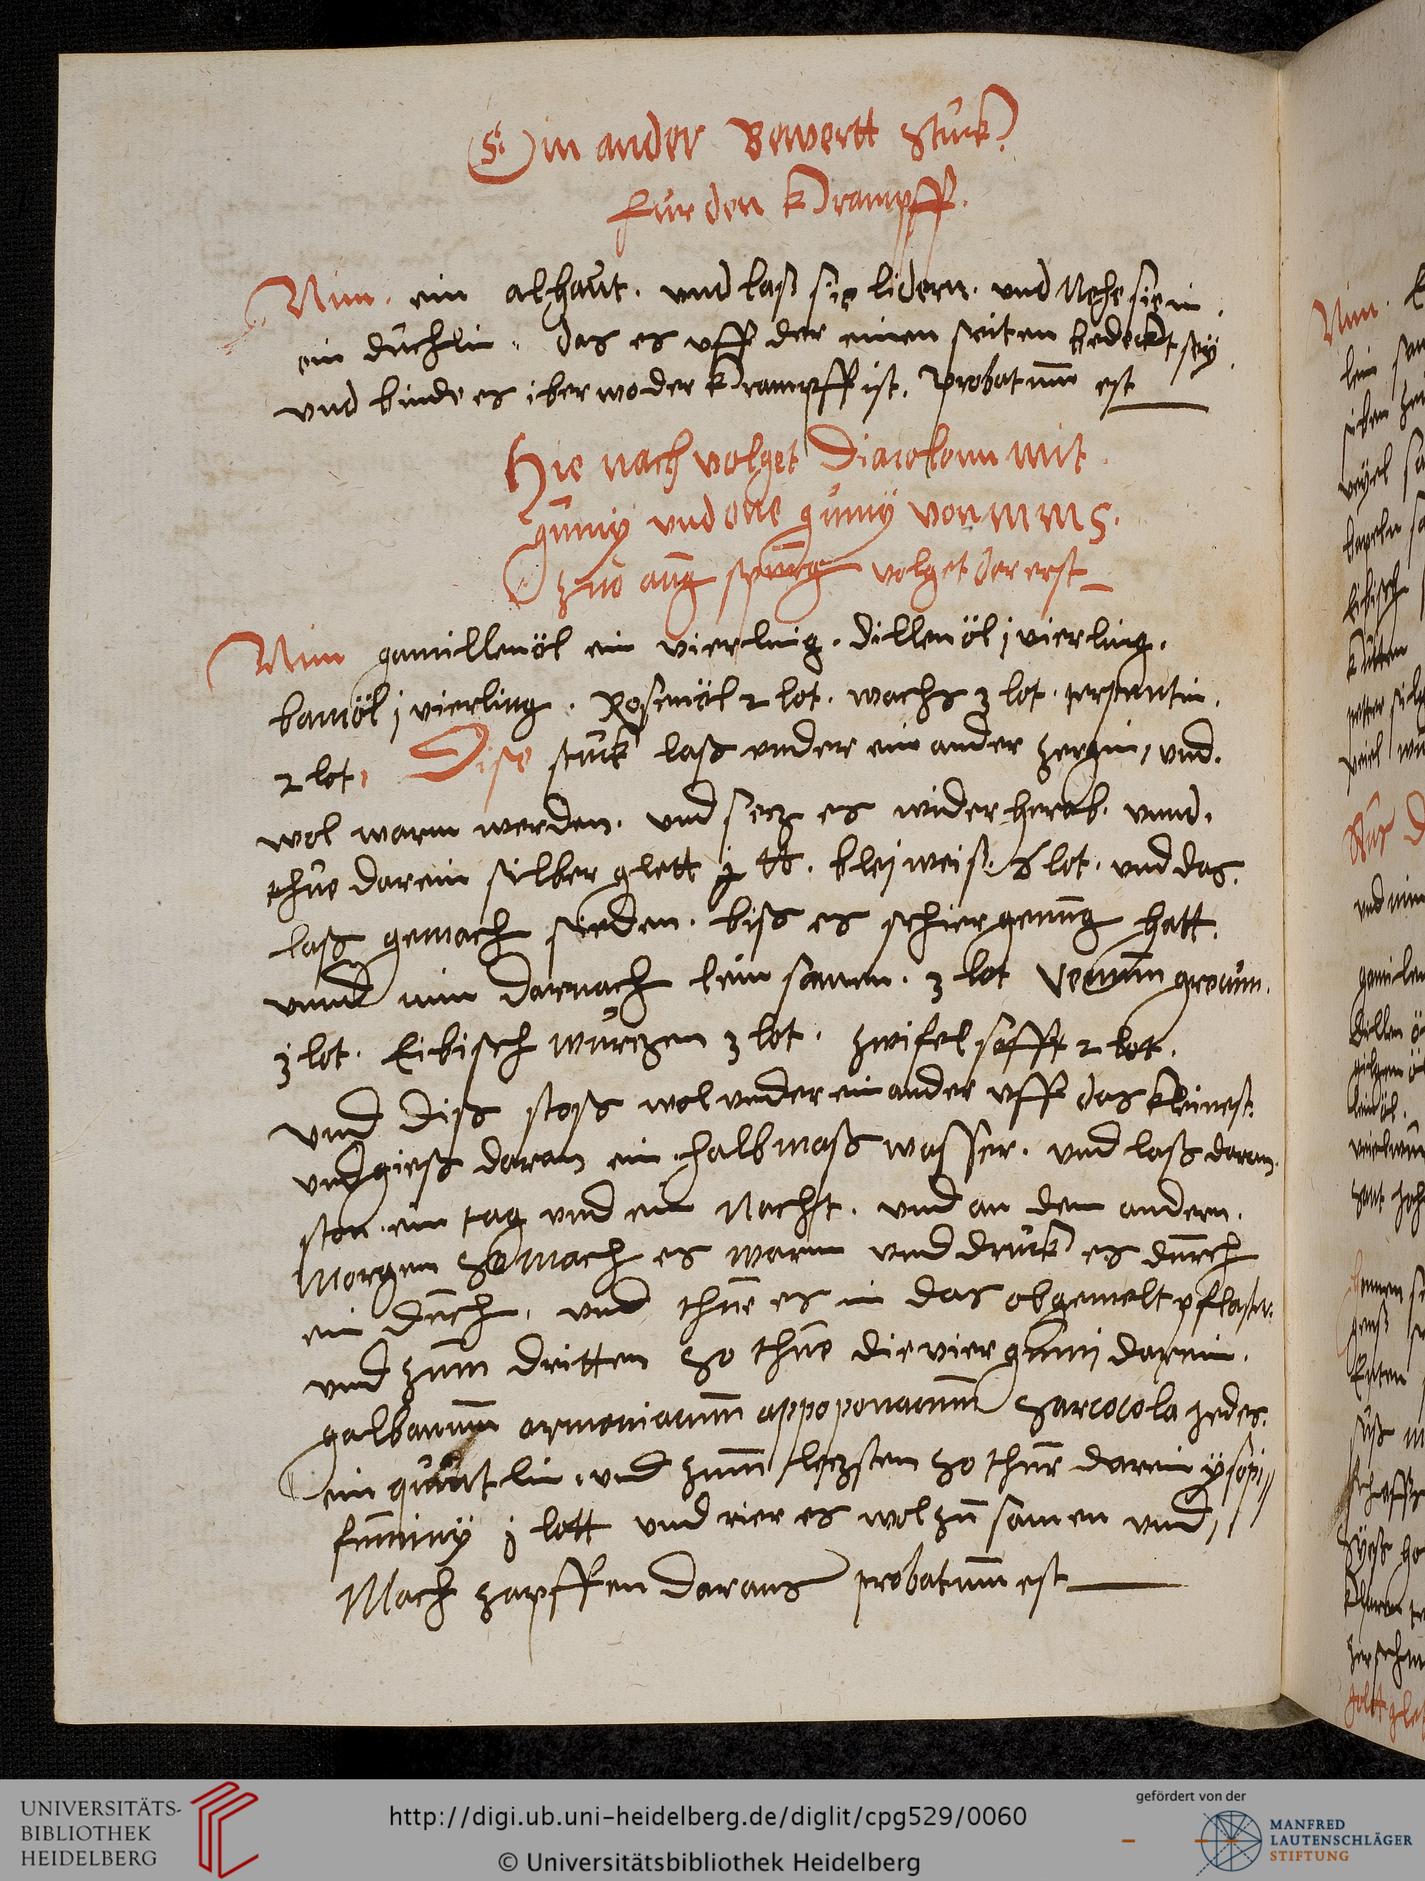 Ein ander Bewertt stuck
fur den Krampff.
Nim. ein alhaut. und laß sie lidern. und Nehe sie in
ein düchlin. das es uff der einen seiten bedeckt sey
und binde es iber wo der Krampff ist. probatum est
Hie nach volget Diacolonn mit
gumy und one gumy von
zuo volget der erst
Nim gamillenöl ein vierling. dillenöl j vierling.
bamöl j vierling. Rosenöl 2 lot. wachs 3 lot. terpentin.
2 lot, Dise stuck laß under ein ander zergin, und.
wol warm werden. und secz es wider herab. unnd.
thuo darein silber glett j lb. bleiweiß. 6 lot. und das.
laß gemach sieden. biß es schier genung hatt.
unnd nim darnach lein samen. 3 lot
3 lot. Eibisch wurczen 3 lot. zwifel safft 2 lot.
und diß stoß wol under ein ander uff das kleinest.
und gieß daran ein halb maß wasser. und laß daran.
ston. ein tag und ein Nacht. und an dem andern.
Morgen so mach es warm und druck es durch
ein duch. und thue es in das obgemelt pflaster.
und zum dritten so thue die vier gumi darein.
galbanum armoniacum appoponacum sarcocola jedes.
ein quintlin. und zum leczsten so thue darein ysopi
j lott und rier es wol zu samen und,
Mach zapffen daraus probatum est
Nim.
UNIVERSITÄTS-
BIBLIOTHEK
HEIDELBERG
http://digi.ub.uni-heidelberg.de/diglit/cpg529/0060
© Universitätsbibliothek Heidelberg
gefördert von der
MANFRED
LAUTENSCHLÄGER
STIFTUNG